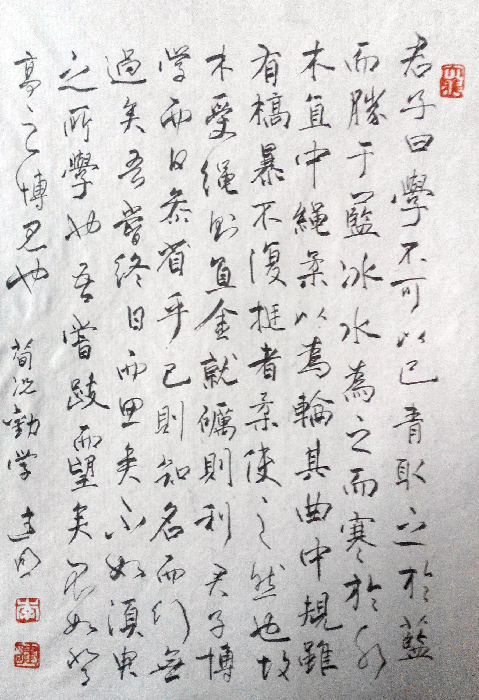 君子曰學不可以已青取之於藍
而勝于藍冰水為之而寒於水
木直中繩柔以為輪其曲中規雖
有槁暴不復挺者柔使之然也故
木受绳则直金就礪則利君子博
学而日参省乎己則知名而行無
過矣吾嘗終日而思矣不如須臾
之所學也吾嘗跂而望矣不如登
高之博見也 荀况勸学